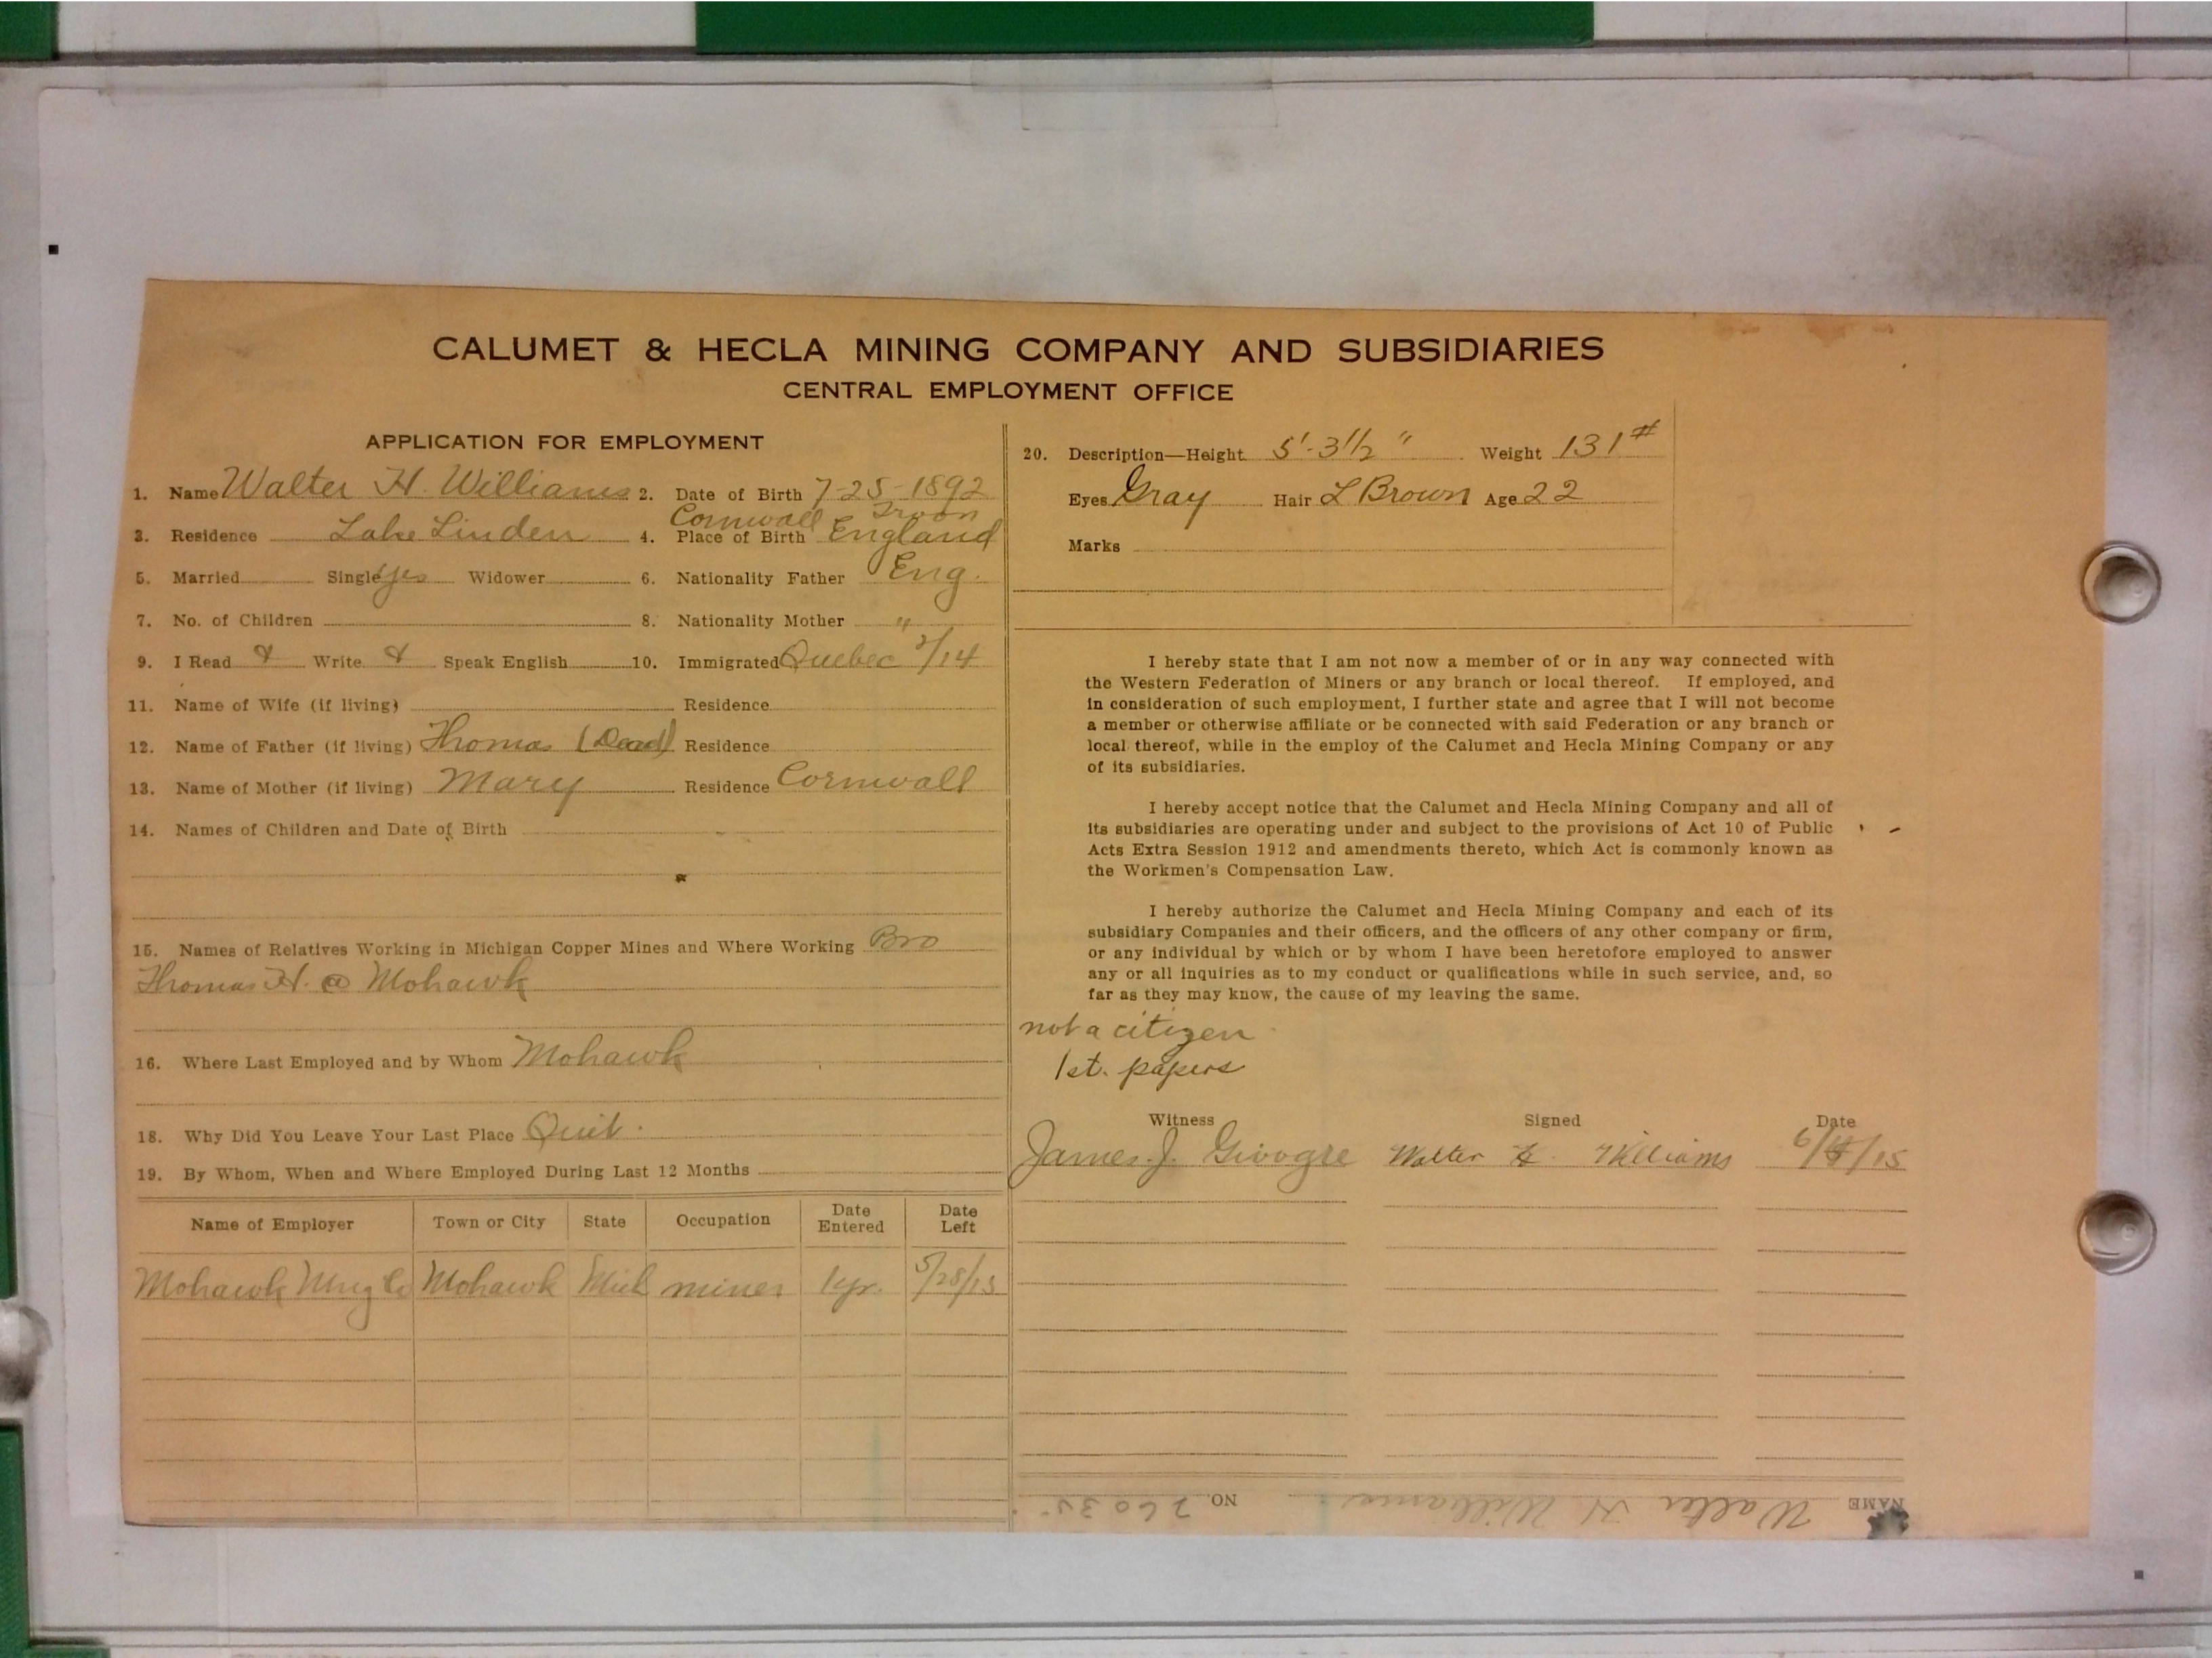 CALUMET & HECLA MINING COMPANY AND SUBSIDIARIES
CENTRAL EMPLOYMENT OFFICE
APPLICATION FOR EMPLOYMENT
1. Name Walter H. Williams 2. Date of Birth 7-25-1892
Cornwall Troon
3. Residence Lake Linden 4. Place of Birth England
5. Married Single yes Widower 6. Nationality Father Eng.
7. No. of Children 8. Nationality Mother "
9. I Read & Write & Speak English 10. Immigrated Quebec 2/14
11. Name of Wife (if living) Residence
12. Name of Father (if living) Thomas (Dead) Residence
13. Name of Mother (if living) Mary Residence Cornwall
14. Names of Children and Date of Birth
15. Names of Relatives Working in Michigan Copper Mines and Where Working Bro
Thomas H. @ Mohawk
16. Where Last Employed and by Whom Mohawk
18. Why Did You Leave Your Last Place Quit.
19. By Whom, When and Where Employed During Last 12 Months
Name of Employer Town or City State Occupation Date Entered Date Left
Mohawk Mng Co Mohawk Mich miner 1 yr. 5/28/15
20. Description—Height 5'-3 1/2" Weight 131#
Eyes Gray Hair L Brown Age 22
Marks
I hereby state that I am not now a member of or in any way connected with
the Western Federation of Miners or any branch or local thereof. If employed, and
in consideration of such employment, I further state and agree that I will not become
a member or otherwise affiliate or be connected with said Federation or any branch or
local thereof, while in the employ of the Calumet and Hecla Mining Company or any
of its subsidiaries.
I hereby accept notice that the Calumet and Hecla Mining Company and all of
its subsidiaries are operating under and subject to the provisions of Act 10 of Public
Acts Extra Session 1912 and amendments thereto, which Act is commonly known as
the Workmen's Compensation Law.
I hereby authorize the Calumet and Hecla Mining Company and each of its
subsidiary Companies and their officers, and the officers of any other company or firm,
or any individual by which or by whom I have been heretofore employed to answer
any or all inquiries as to my conduct or qualifications while in such service, and, so
far as they may know, the cause of my leaving the same.
not a citizen
1st. papers
Witness Signed Date
James. J. Walter H. Williams
NAME Walter H Williams NO. 26035